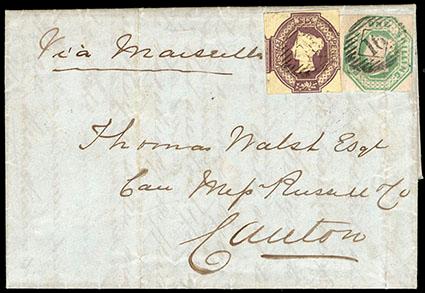 Viâ Marseilles
SIX
ONE
Thomas Walsh Esqr
Care Messrs Russell & Co
Canton